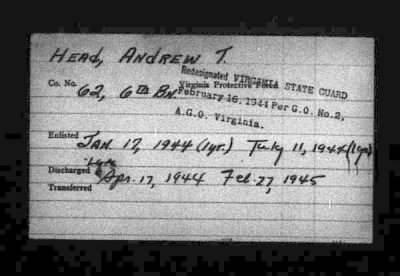 Head, Andrew T.
Redesignated VIRGINIA STATE GUARD
Virginia Protective Force
Co. No. 62, 6th Bn
February 16, 1944 Per G.O. No.2,
A.G.O. Virginia.
Enlisted Jan. 17, 1944 (1yr.) July 11, 1944 (1yr)
Discharged Apr. 17, 1944 Feb. 27, 1945
Transferred